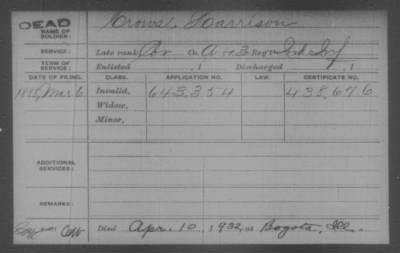 DEAD
NAME OF SOLDIER: Crouse Harrison
SERVICE: Late rank, Co. A + B Reg't Inf
TERM OF SERVICE: Enlisted , 1 Discharged , 1
DATE OF FILING. CLASS. APPLICATION NO. LAW. CERTIFICATE NO.
Mar 6 Invalid, 643,354 438,676
Widow,
Minor,
ADDITIONAL SERVICES:
REMARKS:
Died Apr. 10, 1932, at Bogota, Ill.